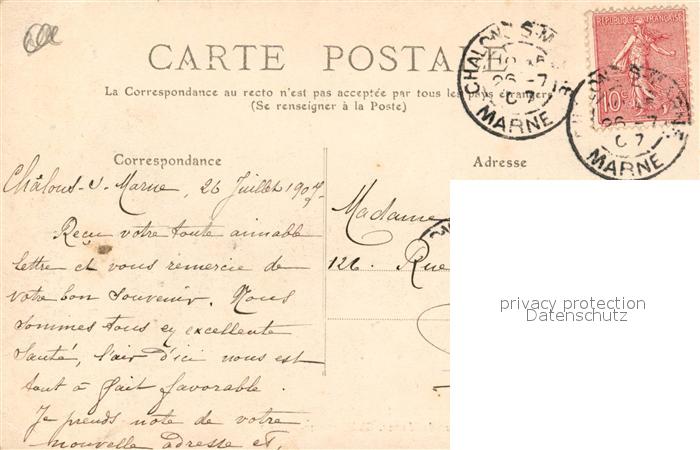 CARTE POSTALE
La Correspondance au recto n'est pas acceptée par tous les pays étrangers
(Se renseigner à la Poste)
RÉPUBLIQUE FRANÇAISE
10c
CHALONS-S-MARNE
26-7
07
MARNE
CHALONS-S-MARNE
26-7
07
MARNE
Correspondance
Châlons-s-Marne, 26 Juillet 1907.
Reçu votre toute aimable
lettre et vous remercie de
votre bon souvenir. Nous
sommes tous en excellente
santé, l'air d'ici nous est
tout à fait favorable.
Je prends note de votre
nouvelle adresse et,
Adresse
Madame
126. Rue
privacy protection
Datenschutz